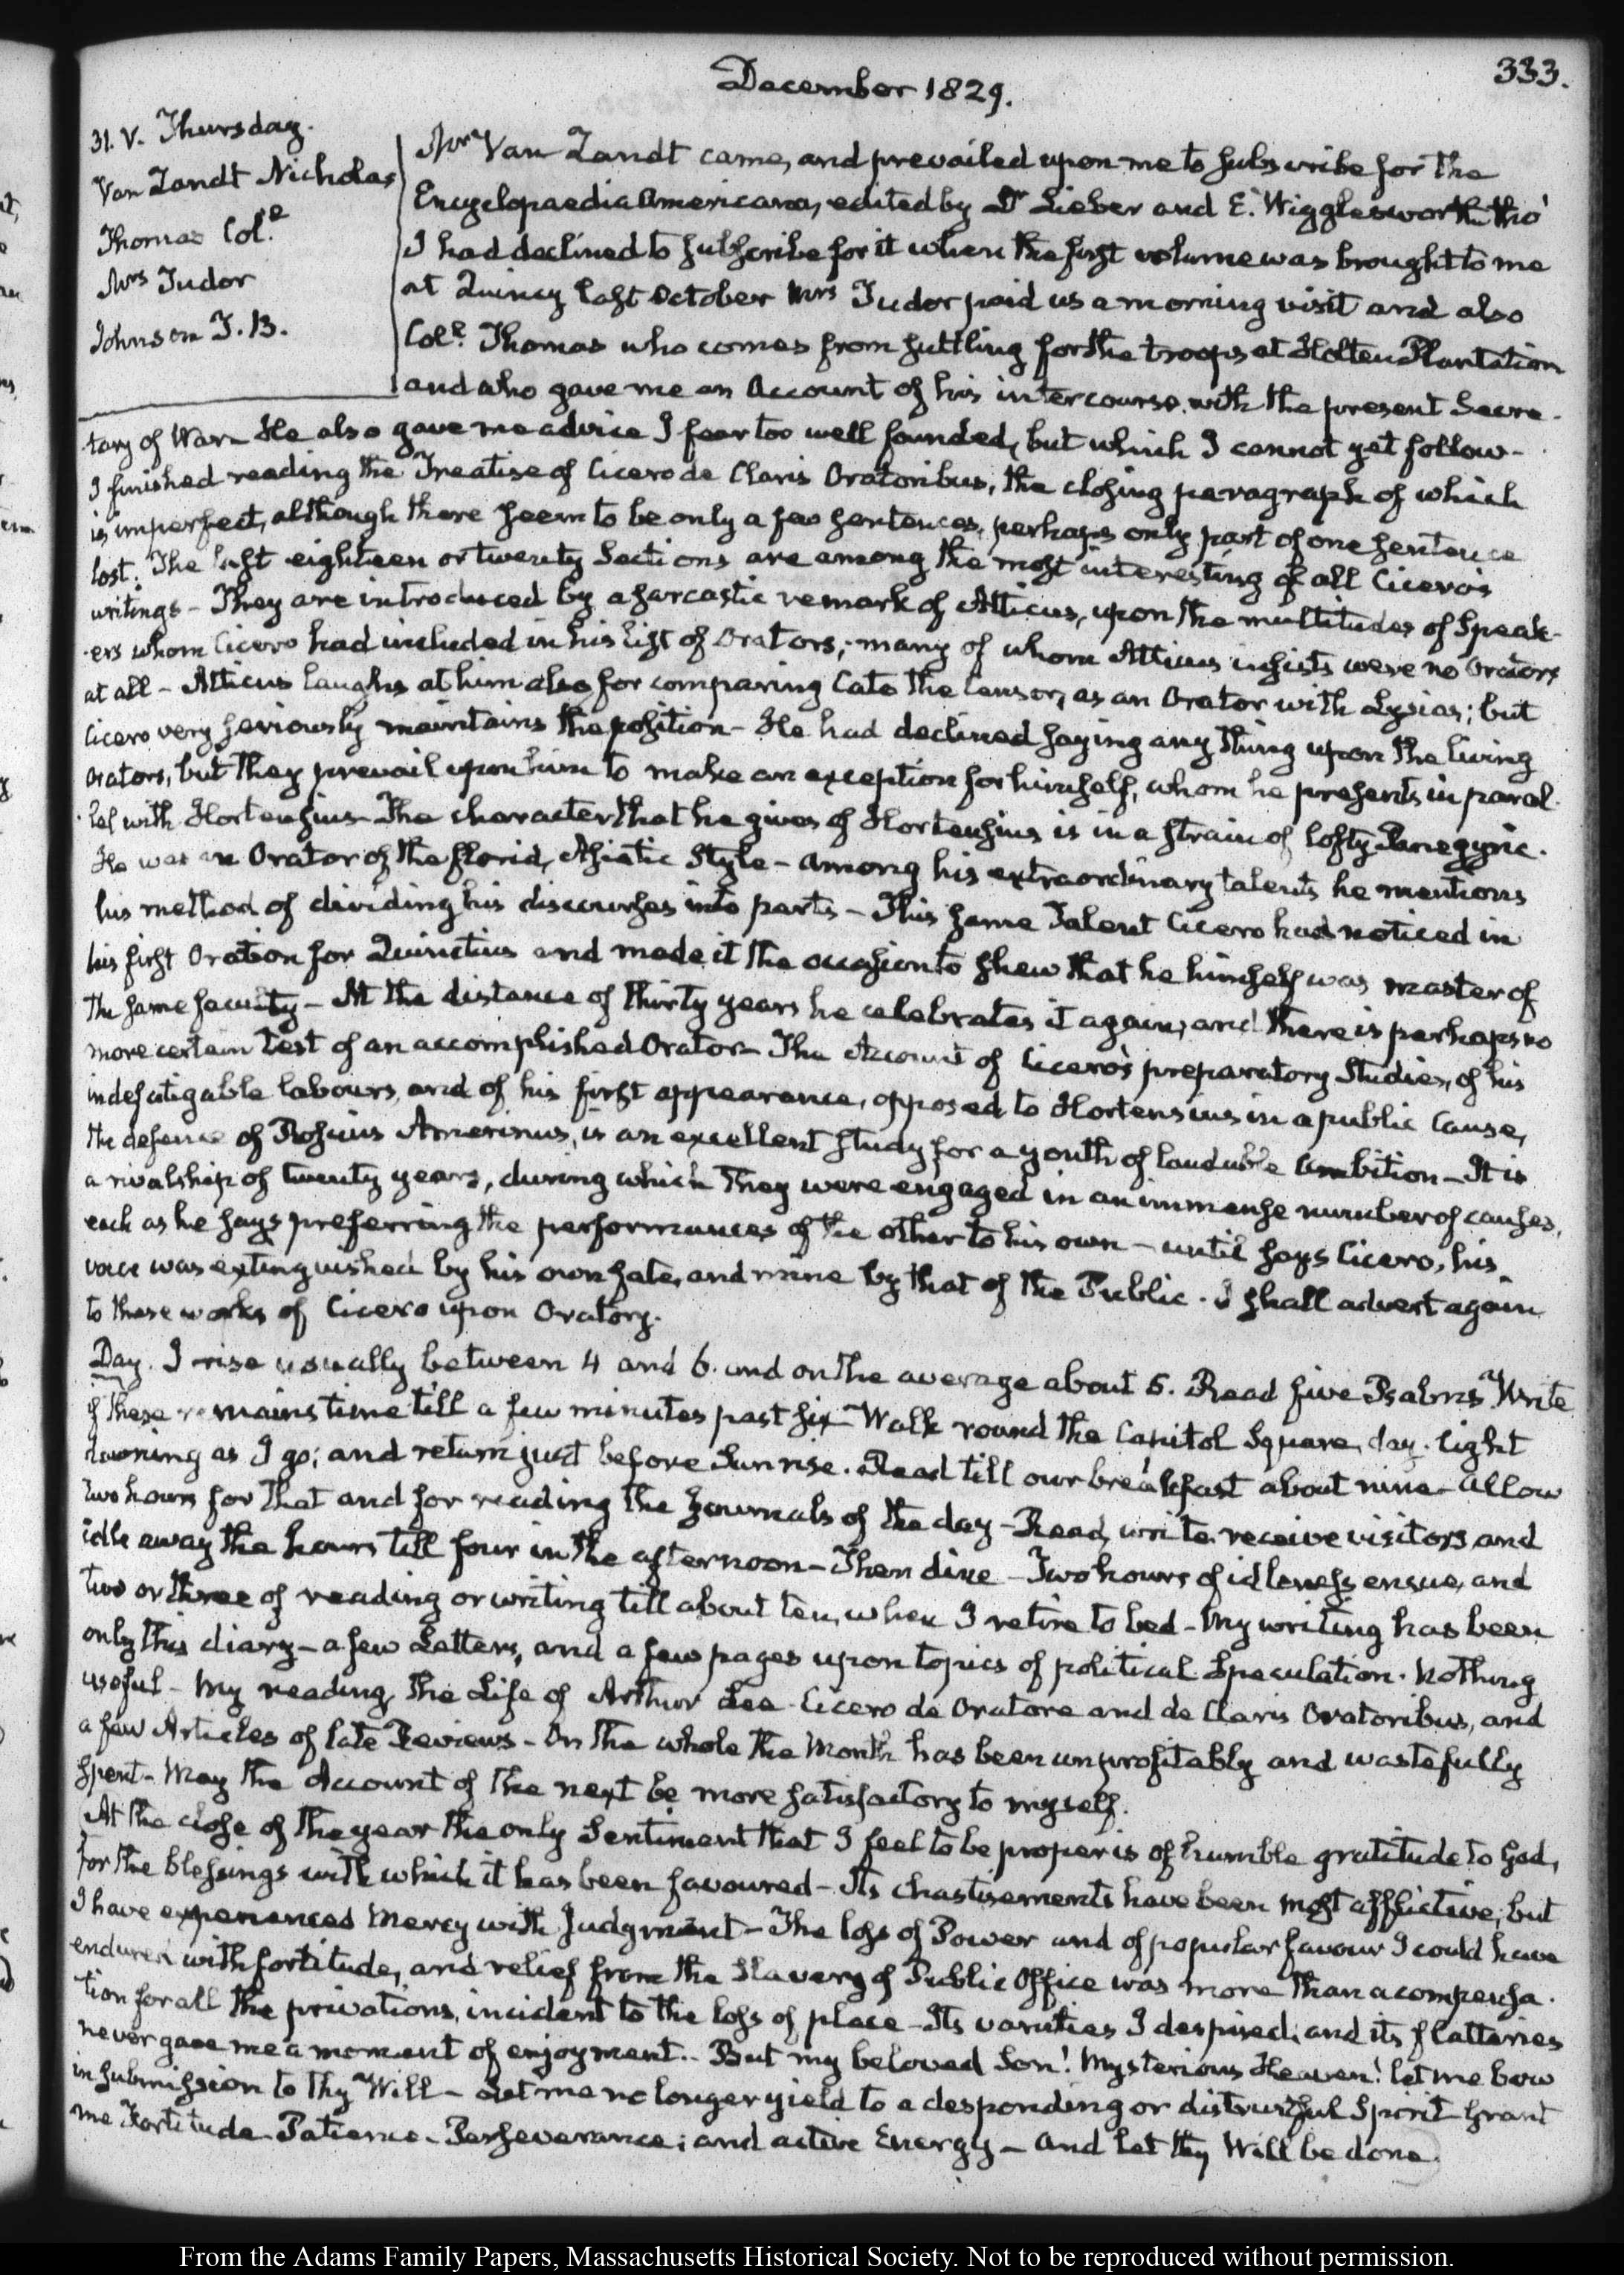 December 1829.
333.
31. V. Thursday.
Van Zandt Nicholas
Thomas Col.l
Mrs Tudor
Johnson J. B.
Mr Van Zandt came, and prevailed upon me to subscribe for the
Encyclopaedia Americana, edited by Dr Lieber and E. Wigglesworth tho'
I had declined to subscribe for it when the first volume was brought to me
at Quincy last October Mrs Tudor paid us a morning visit and also
Coll. Thomas who comes from suttling for the troops at Holten Plantation
and who gave me an Account of his intercourse with the present Secre-
tary of War. He also gave me advice I fear too well founded, but which I cannot yet follow-
I finished reading the Treatise of Cicero de Claris Oratoribus, the closing paragraph of which
is imperfect, although there seem to be only a few sentences, perhaps only part of one sentence
lost. The last eighteen or twenty Sections are among the most interesting of all Cicero's
writings - They are introduced by a sarcastic remark of Atticus, upon the multitudes of Speak-
-ers whom Cicero had included in his list of Orators; many of whom Atticus insists were no Orators
at all - Atticus laughs at him also for comparing Cato the Censor, as an Orator with Lysias; but
Cicero very seriously maintains the position - He had declined saying any thing upon the living
Orators, but they prevail upon him to make an exception for himself, whom he presents in paral-
-lel with Hortensius - The character that he gives of Hortensius is in a strain of lofty Panegyric.
He was an Orator of the florid, Asiatic Style - among his extraordinary talents he mentions
his method of dividing his discourses into parts - This same Talent Cicero had noticed in
his first Oration for Quinctius and made it the occasion to shew that he himself was master of
the same faculty - At the distance of thirty years he celebrates it again, and there is perhaps no
more certain test of an accomplished Orator - The Account of Cicero's preparatory Studies, of his
indefatigable labours, and of his first appearance, opposed to Hortensius in a public Cause,
the defence of Roscius Amerinus, is an excellent study for a youth of laudable Ambition - It is
a rivalship of twenty years, during which they were engaged in an immense number of causes,
each as he says preferring the performances of the other to his own - until says Cicero, his
voice was extinguished by his own fate, and mine by that of the Public. I shall advert again
to these works of Cicero upon Oratory.
Day. I rise usually between 4 and 6. and on the average about 5. Read five Psalms. Write
if there remains time till a few minutes past six - Walk round the Capitol Square, day-light
dawning as I go; and return just before Sunrise. Read till our breakfast about nine - allow
two hours for that and for reading the Journals of the day - Read, write, receive visitors, and
idle away the hours till four in the afternoon - Then dine - Two hours of idleness ensue, and
two or three of reading or writing till about ten, when I retire to bed - My writing has been
only this diary - a few Letters, and a few pages upon topics of political Speculation. Nothing
useful - My reading, the Life of Arthur Lee - Cicero de Oratore and de Claris Oratoribus, and
a few Articles of late Reviews - On the whole the Month has been unprofitably and wastefully
spent - May the Account of the next be more satisfactory to myself.
At the close of the year the only Sentiment that I feel to be proper is of humble gratitude to God,
for the blessings with which it has been favoured - Its chastisements have been most afflictive, but
I have experienced Mercy with Judgment - The loss of Power and of popular favour I could have
endured with fortitude, and relief from the Slavery of Public Office was more than a compensa-
tion for all the privations, incident to the loss of place - Its vanities I despised, and its flatteries
never gave me a moment of enjoyment - But my beloved Son! Mysterious Heaven! let me bow
in submission to thy Will - Let me no longer yield to a desponding or distrustful Spirit - Grant
me Fortitude - Patience - Perseverance; and active Energy - and let thy Will be done.
From the Adams Family Papers, Massachusetts Historical Society. Not to be reproduced without permission.